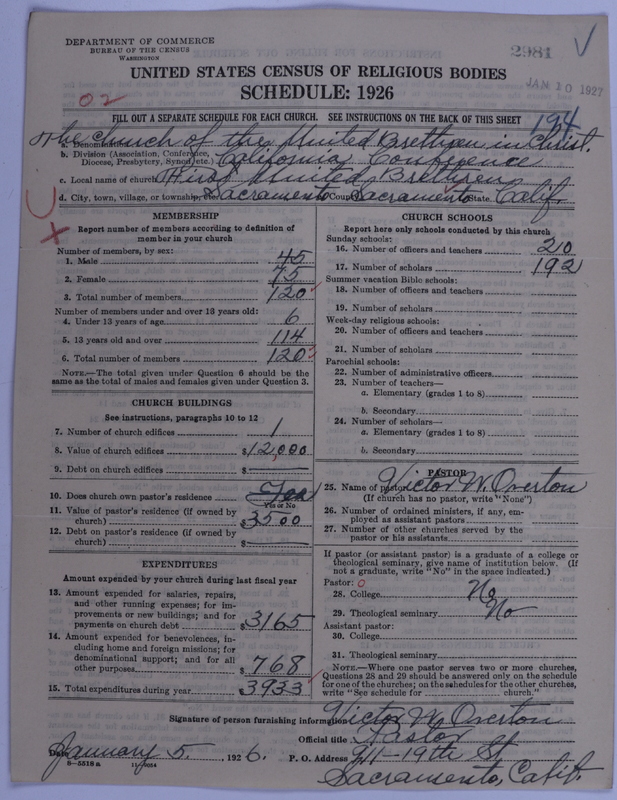 DEPARTMENT OF COMMERCE
BUREAU OF THE CENSUS
WASHINGTON
2981
JAN 10 1927
UNITED STATES CENSUS OF RELIGIOUS BODIES
SCHEDULE: 1926
02
FILL OUT A SEPARATE SCHEDULE FOR EACH CHURCH. SEE INSTRUCTIONS ON THE BACK OF THIS SHEET
194
a. Denomination The Church of the United Brethren in Christ.
b. Division (Association, Conference, Diocese, Presbytery, Synod, etc.) California Conference
c. Local name of church First United Brethren
d. City, town, village, or township, etc. Sacramento County Sacramento State Calif.
MEMBERSHIP
Report number of members according to definition of
member in your church
Number of members, by sex:
1. Male 45
2. Female 75
3. Total number of members 120
Number of members under and over 13 years old:
4. Under 13 years of age 6
5. 13 years old and over 114
6. Total number of members 120
NOTE.—The total given under Question 6 should be the
same as the total of males and females given under Question 3.
CHURCH BUILDINGS
See instructions, paragraphs 10 to 12
7. Number of church edifices 1
8. Value of church edifices $12,000
9. Debt on church edifices $
10. Does church own pastor's residence Yes
Yes or No
11. Value of pastor's residence (if owned by
church) $3500
12. Debt on pastor's residence (if owned by
church) $
EXPENDITURES
Amount expended by your church during last fiscal year
13. Amount expended for salaries, repairs,
and other running expenses; for im-
provements or new buildings; and for
payments on church debt $3165
14. Amount expended for benevolences, in-
cluding home and foreign missions; for
denominational support; and for all
other purposes $768
15. Total expenditures during year $3933
CHURCH SCHOOLS
Report here only schools conducted by this church
Sunday schools:
16. Number of officers and teachers 20
17. Number of scholars 192
Summer vacation Bible schools:
18. Number of officers and teachers
19. Number of scholars
Week-day religious schools:
20. Number of officers and teachers
21. Number of scholars
Parochial schools:
22. Number of administrative officers
23. Number of teachers—
a. Elementary (grades 1 to 8)
b. Secondary
24. Number of scholars—
a. Elementary (grades 1 to 8)
b. Secondary
PASTOR
25. Name of pastor Victor W. Overton
(If church has no pastor, write "None")
26. Number of ordained ministers, if any, em-
ployed as assistant pastors
27. Number of other churches served by the
pastor or his assistants
If pastor (or assistant pastor) is a graduate of a college or
theological seminary, give name of institution below. (If
not a graduate, write "No" in the space indicated.)
Pastor: 0
28. College No
29. Theological seminary No
Assistant pastor:
30. College
31. Theological seminary
NOTE.—Where one pastor serves two or more churches,
Questions 28 and 29 should be answered only on the schedule
for one of the churches; on the schedules for the other churches,
write "See schedule for church."
Signature of person furnishing information Victor W. Overton
Official title Pastor
Date January 5, 1926. P. O. Address 911-19th St
8-5518a
Sacramento, Calif.